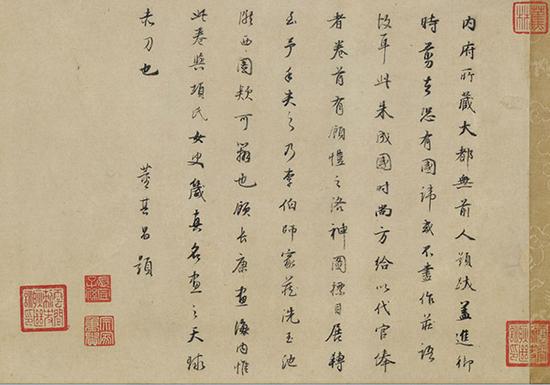 內府所藏大都無前人題跋蓋進御
時剪去恐有國諱或不盡作莊語
故耳此朱成國時尚方給以代官俸
者卷首有顧愷之洛神圖標目展轉
至予手失之乃李伯時家藏洗玉池
西園款可也顧長康畫海內惟
此卷與項氏女史箴真名畫之天球
赤刀也
董其昌題